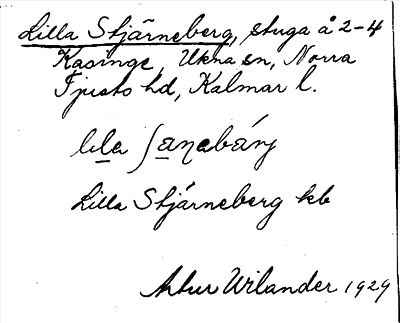 Lilla Stjärneberg, stuga å 2-4
Kasinge, Ukna sn, Norra
Tjusts hd, Kalmar l.
lila
Lilla Stjärneberg kb
Artur Wilander 1929